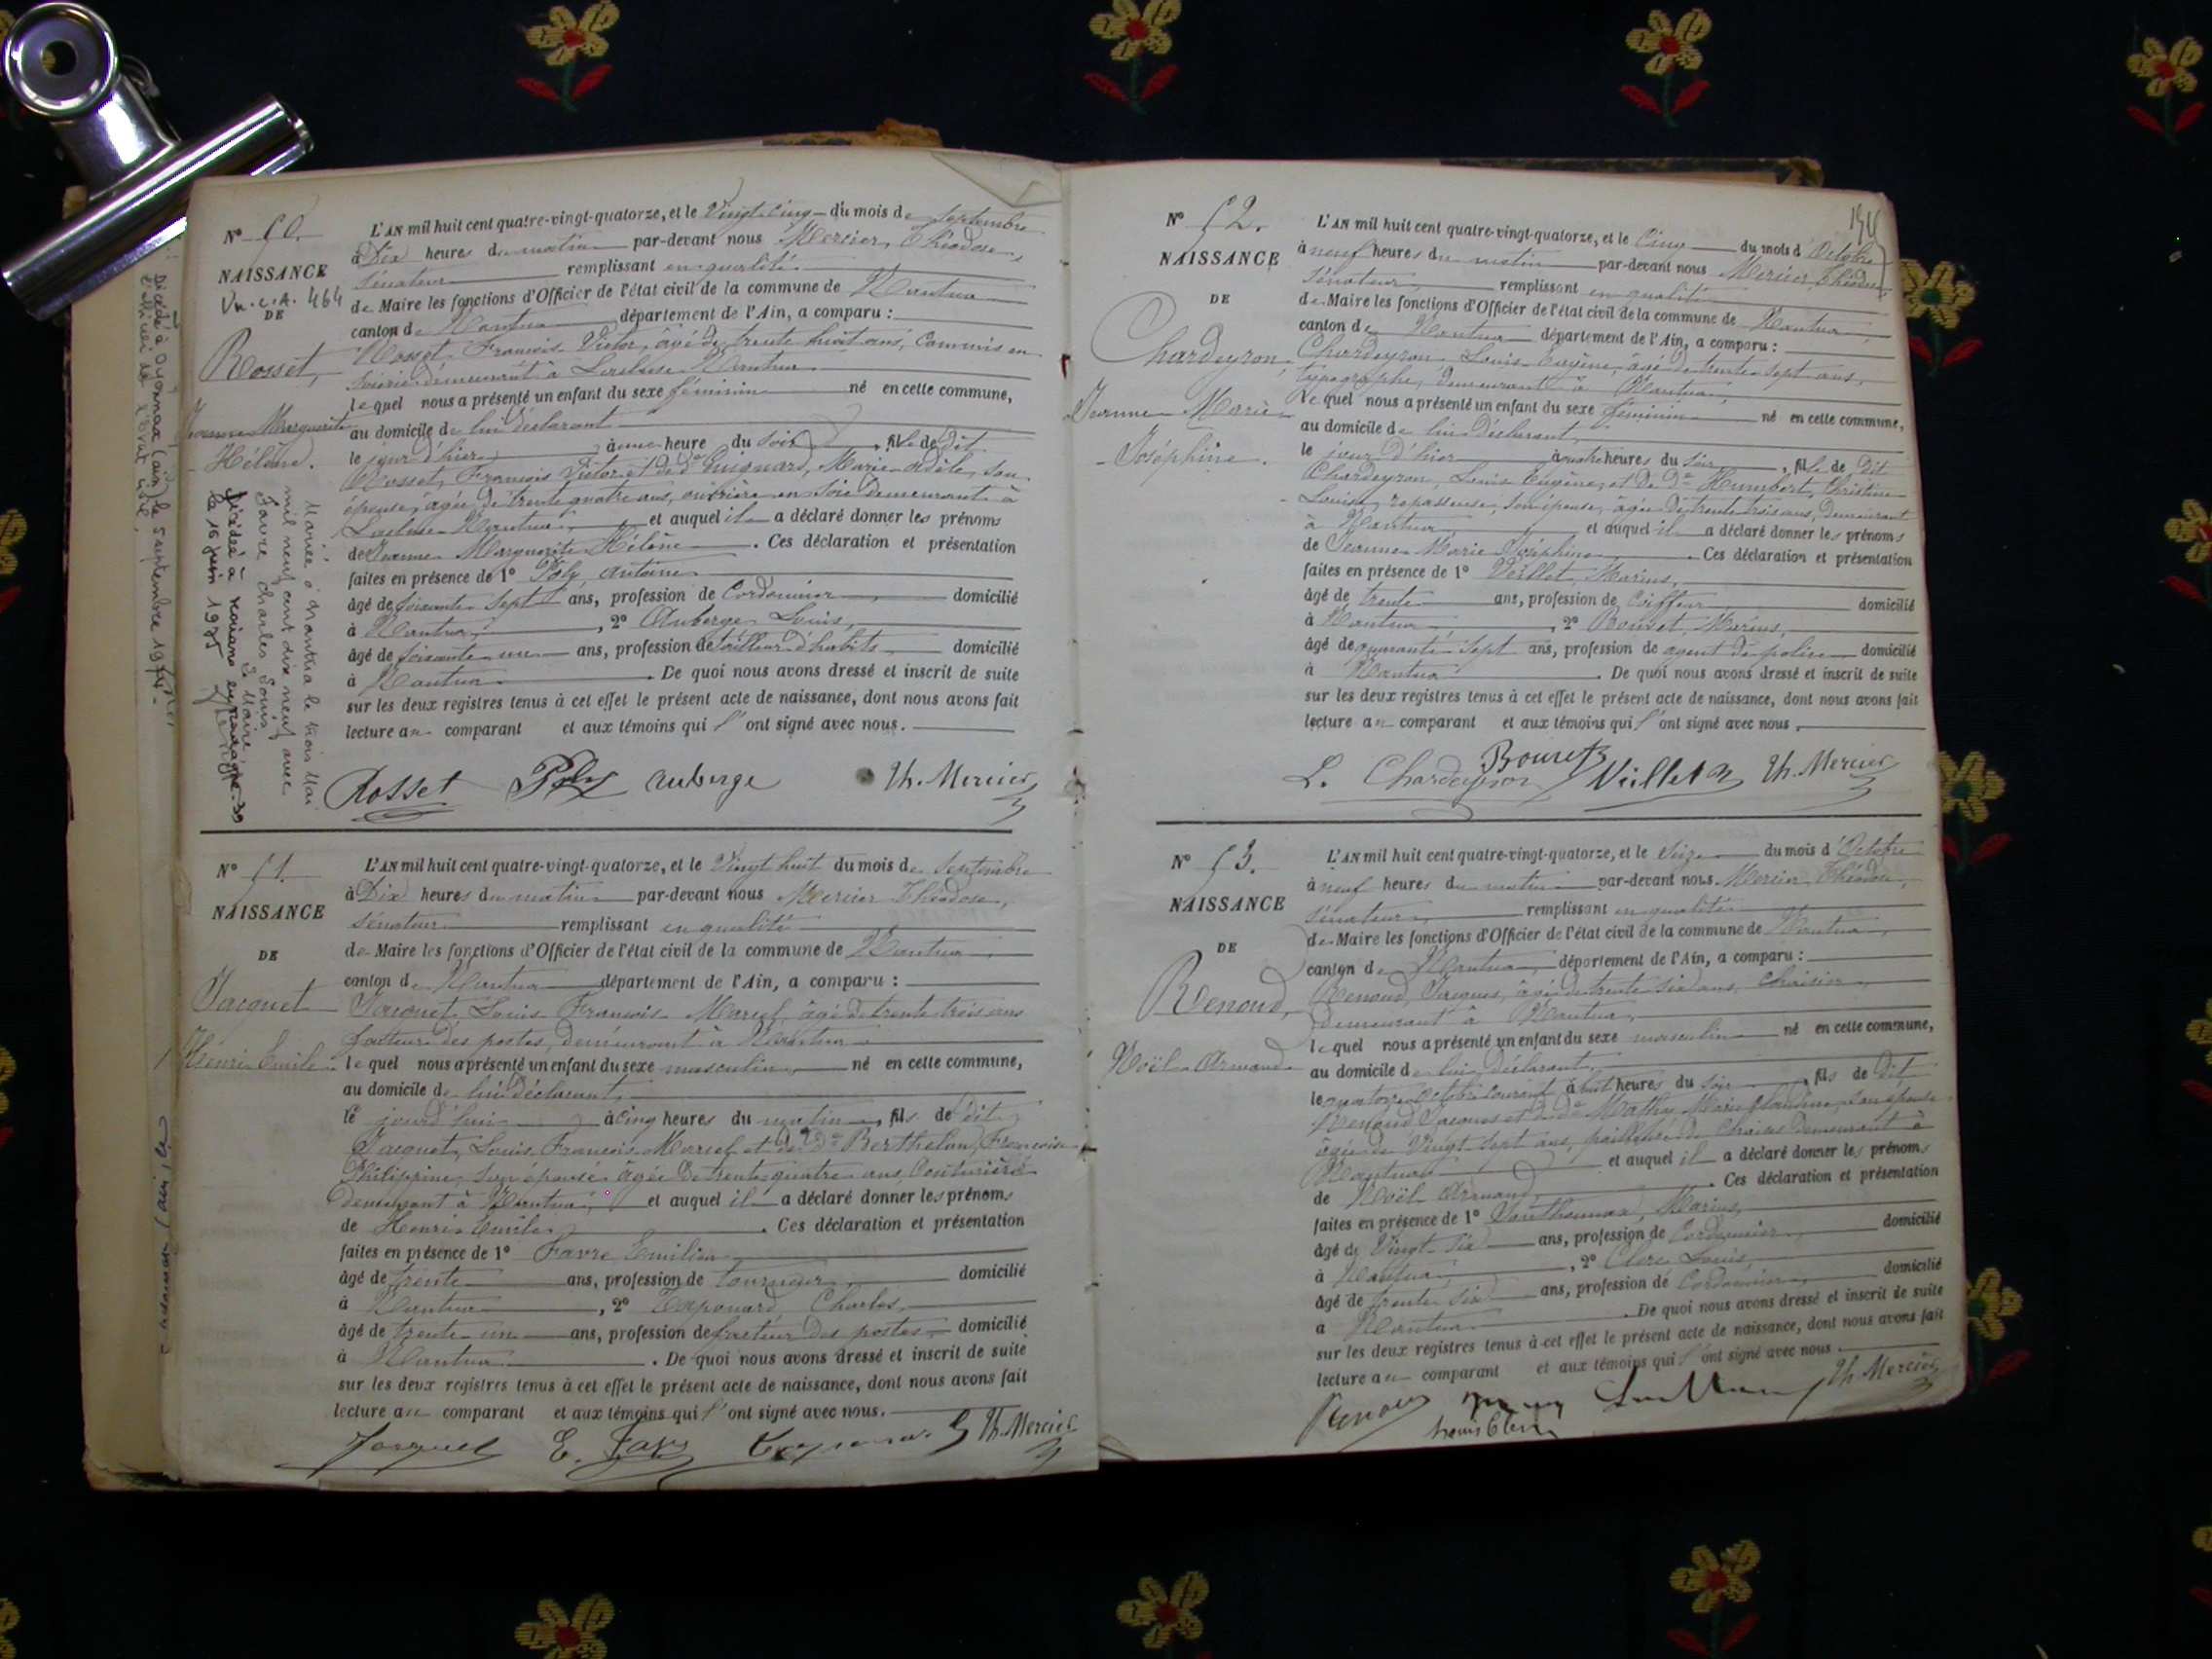 Nº 50.
NAISSANCE
Vu. C.A. 464
DE
Rosset,
Jeanne Marguerite
Hélène.
L'AN mil huit cent quatre-vingt-quatorze, et le Vingt-cinq du mois de septembre
à Dix heures du matin par-devant nous Mercier, Théodose,
Sénateur remplissant en qualité
de Maire les fonctions d'Officier de l'état civil de la commune de Nantua
canton de Nantua département de l'Ain, a comparu :
Rosset, François Victor, âgé de trente huit ans, Commis en
soierie demeurant à Nantua
lequel nous a présenté un enfant du sexe féminin né en cette commune,
au domicile de lui déclarant
le jour d'hier à une heure du soir, fille de dit
Rosset, François Victor et de de Guignard, Marie Adèle, son
épouse, âgée de trente quatre ans, ouvrière en soie demeurant à
Nantua et auquel il a déclaré donner les prénoms
de Jeanne Marguerite Hélène. Ces déclaration et présentation
faites en présence de 1º Poly, Antoine
âgé de soixante sept ans, profession de Cordonnier domicilié
à Nantua, 2º Auberge Louis,
âgé de soixante un ans, profession de tailleur d'habits domicilié
à Nantua. De quoi nous avons dressé et inscrit de suite
sur les deux registres tenus à cet effet le présent acte de naissance, dont nous avons fait
lecture au comparant et aux témoins qui l'ont signé avec nous.
Rosset Poly Auberge Th. Mercier
Mariée à Nantua le trois Mai
mil neuf cent dix neuf avec
Favre Charles Louis
Le Maire
Décédée à
le 16 juin 1975
Décédé à Oyonnax (Ain) le 5 septembre
Nº 51.
NAISSANCE
DE
Jacquet
Henri Emile
L'AN mil huit cent quatre-vingt-quatorze, et le Vingt huit du mois de septembre
à Dix heures du matin par-devant nous Mercier Théodose,
Sénateur remplissant en qualité
de Maire les fonctions d'Officier de l'état civil de la commune de Nantua
canton de Nantua département de l'Ain, a comparu :
Jacquet, Louis François Marcel, âgé de trente trois ans
facteur des postes, demeurant à Nantua
lequel nous a présenté un enfant du sexe masculin né en cette commune,
au domicile de lui déclarant
le jourd'hui à cinq heures du matin, fils de dit
Jacquet, Louis François Marcel et de de Berthelon, Françoise
Philippine, son épouse âgée de trente quatre ans, Couturière
demeurant à Nantua, et auquel il a déclaré donner les prénoms
de Henri Emile. Ces déclaration et présentation
faites en présence de 1º Favre Emilien
âgé de trente ans, profession de tourneur domicilié
à Nantua, 2º Tapouard Charles
âgé de trente un ans, profession de facteur des postes domicilié
à Nantua. De quoi nous avons dressé et inscrit de suite
sur les deux registres tenus à cet effet le présent acte de naissance, dont nous avons fait
lecture au comparant et aux témoins qui l'ont signé avec nous.
Jacquet E. Favre Th. Mercier
Nº 52.
NAISSANCE
DE
Chardeyron,
Jeanne Marie
Joséphine.
L'AN mil huit cent quatre-vingt-quatorze, et le Cinq du mois d'Octobre
à neuf heures du matin par-devant nous Mercier, Théodose,
Sénateur, remplissant en qualité
de Maire les fonctions d'Officier de l'état civil de la commune de Nantua,
canton de Nantua département de l'Ain, a comparu :
Chardeyron, Louis Eugène, âgé de trente sept ans,
typographe, demeurant à Nantua,
lequel nous a présenté un enfant du sexe féminin né en cette commune,
au domicile de lui déclarant
le jour d'hier à quatre heures du soir, fille de dit
Chardeyron, Louis Eugène, et de de Humbert, Christine
Louise, repasseuse, son épouse, âgée de trente trois ans, demeurant
à Nantua, et auquel il a déclaré donner les prénoms
de Jeanne Marie Joséphine. Ces déclaration et présentation
faites en présence de 1º Veillet, Marius,
âgé de trente ans, profession de Coiffeur domicilié
à Nantua, 2º Bouvet, Marius,
âgé de quarante sept ans, profession de agent de police domicilié
à Nantua. De quoi nous avons dressé et inscrit de suite
sur les deux registres tenus à cet effet le présent acte de naissance, dont nous avons fait
lecture au comparant et aux témoins qui l'ont signé avec nous.
L. Chardeyron Bouvet Veillet Th. Mercier
Nº 53.
NAISSANCE
DE
Renoud,
Noël Armand
L'AN mil huit cent quatre-vingt-quatorze, et le Seize du mois d'Octobre
à neuf heures du matin par-devant nous Mercier, Théodose,
Sénateur, remplissant en qualité
de Maire les fonctions d'Officier de l'état civil de la commune de Nantua,
canton de Nantua, département de l'Ain, a comparu :
Renoud, Jacques, âgé de trente six ans, Chaisier,
demeurant à Nantua,
lequel nous a présenté un enfant du sexe masculin né en cette commune,
au domicile de lui déclarant,
le quatorze octobre courant à huit heures du soir, fils de dit
Renoud Jacques et de de Mathy, Marie Claudine, son épouse
âgée de Vingt sept ans, pailleuse de chaises demeurant à
Nantua et auquel il a déclaré donner les prénoms
de Noël Armand. Ces déclaration et présentation
faites en présence de 1º Santhonnax, Marius,
âgé de Vingt six ans, profession de Cordonnier, domicilié
à Nantua, 2º Clerc Louis,
âgé de trente six ans, profession de Cordonnier, domicilié
à Nantua. De quoi nous avons dressé et inscrit de suite
sur les deux registres tenus à cet effet le présent acte de naissance, dont nous avons fait
lecture au comparant et aux témoins qui l'ont signé avec nous.
Renoud Th. Mercier
Louis Clerc